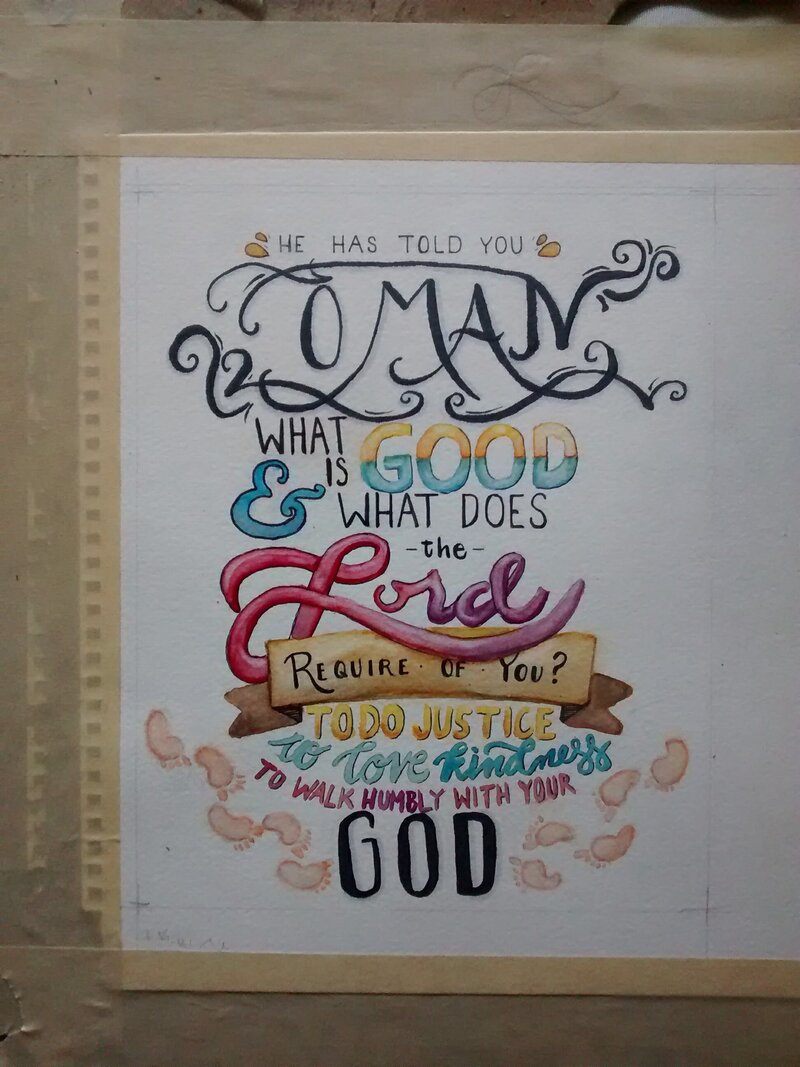 HE HAS TOLD YOU
O MAN
WHAT
IS GOOD
& WHAT DOES
-the-
Lord
REQUIRE · OF · YOU?
TO DO JUSTICE
to love kindness
TO WALK HUMBLY WITH YOUR
GOD